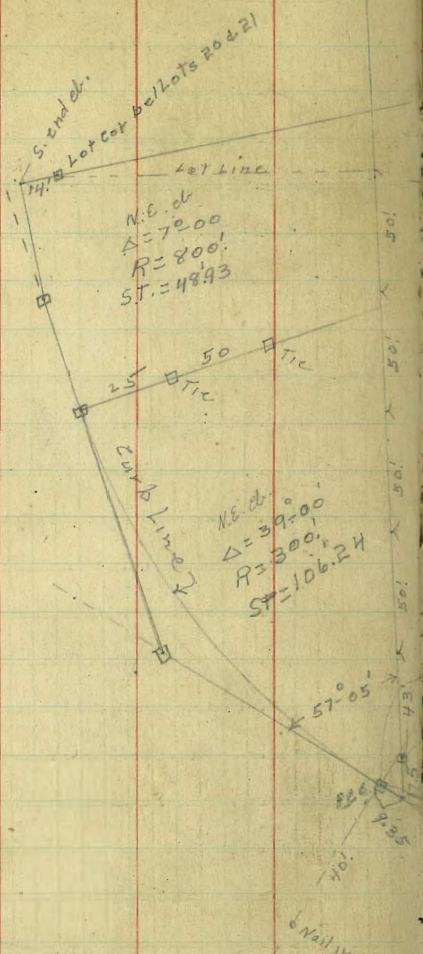 S. end cb.
4' Lot Cor bet Lots 20 & 21
Lot Line
N.E. cb
Δ = 7°-00
R = 800'
S.T. = 48.93'
50'
50'
25 50
Tie
Tie
Curb Line
50'
N.E. cb.
Δ = 39°-00'
R = 300'
ST = 106.24'
50'
57°-05'
43'
9.35
40'
6 Nail in